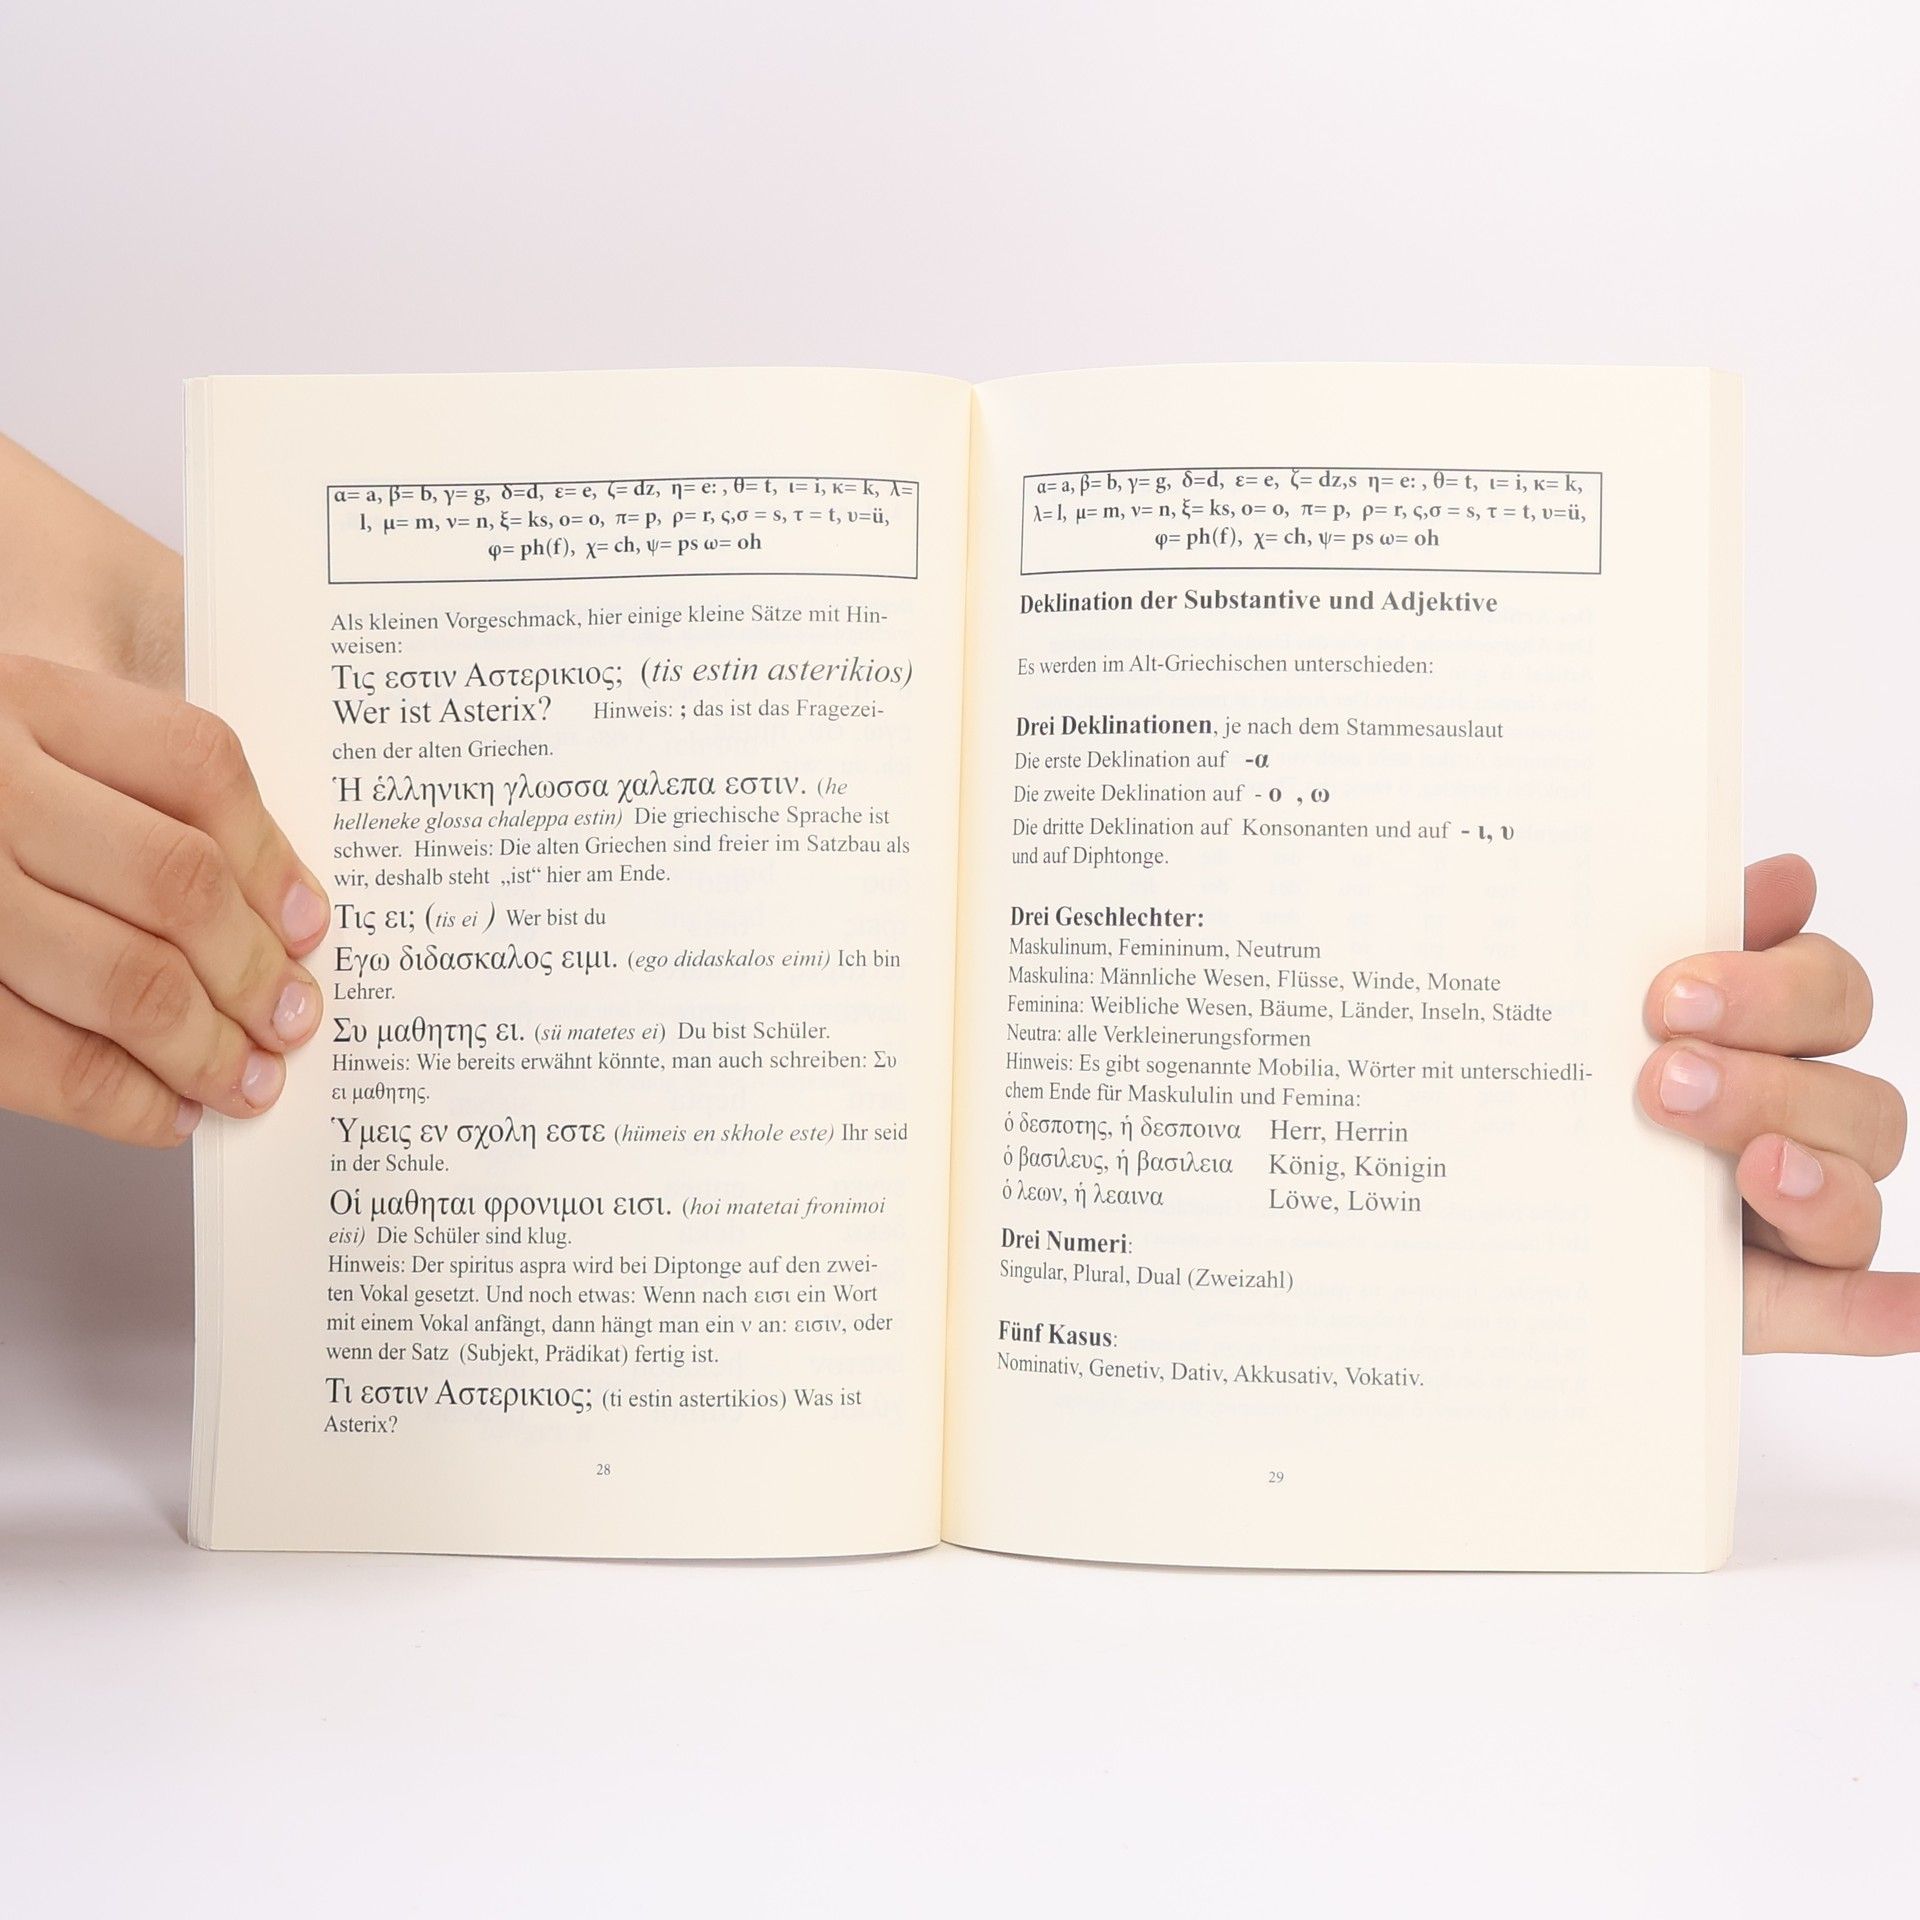 α= a, β= b, γ= g, δ=d, ε= e, ζ= dz, η= e: , θ= t, ι= i, κ= k, λ=
l, μ= m, ν= n, ξ= ks, ο= o, π= p, ρ= r, ς,σ = s, τ = t, υ=ü,
φ= ph(f), χ= ch, ψ= ps ω= oh
Als kleinen Vorgeschmack, hier einige kleine Sätze mit Hin-
weisen:
Τις εστιν Αστερικιος; (tis estin asterikios)
Wer ist Asterix? Hinweis: ; das ist das Fragezei-
chen der alten Griechen.
Ἡ ἑλληνικη γλωσσα χαλεπα εστιν. (he
helleneke glossa chaleppa estin) Die griechische Sprache ist
schwer. Hinweis: Die alten Griechen sind freier im Satzbau als
wir, deshalb steht „ist“ hier am Ende.
Τις ει; (tis ei ) Wer bist du
Εγω διδασκαλος ειμι. (ego didaskalos eimi) Ich bin
Lehrer.
Συ μαθητης ει. (sü matetes ei) Du bist Schüler.
Hinweis: Wie bereits erwähnt könnte, man auch schreiben: Συ
ει μαθητης.
Ὑμεις εν σχολη εστε (hümeis en skhole este) Ihr seid
in der Schule.
Οἱ μαθηται φρονιμοι εισι. (hoi matetai fronimoi
eisi) Die Schüler sind klug.
Hinweis: Der spiritus aspra wird bei Diptonge auf den zwei-
ten Vokal gesetzt. Und noch etwas: Wenn nach εισι ein Wort
mit einem Vokal anfängt, dann hängt man ein ν an: εισιν, oder
wenn der Satz (Subjekt, Prädikat) fertig ist.
Τι εστιν Αστερικιος; (ti estin astertikios) Was ist
Asterix?
28
α= a, β= b, γ= g, δ=d, ε= e, ζ= dz,s η= e: , θ= t, ι= i, κ= k,
λ= l, μ= m, ν= n, ξ= ks, ο= o, π= p, ρ= r, ς,σ = s, τ = t, υ=ü,
φ= ph(f), χ= ch, ψ= ps ω= oh
Deklination der Substantive und Adjektive
Es werden im Alt-Griechischen unterschieden:
Drei Deklinationen, je nach dem Stammesauslaut
Die erste Deklination auf -α
Die zweite Deklination auf - ο , ω
Die dritte Deklination auf Konsonanten und auf - ι, υ
und auf Diphtonge.
Drei Geschlechter:
Maskulinum, Femininum, Neutrum
Maskulina: Männliche Wesen, Flüsse, Winde, Monate
Feminina: Weibliche Wesen, Bäume, Länder, Inseln, Städte
Neutra: alle Verkleinerungsformen
Hinweis: Es gibt sogenannte Mobilia, Wörter mit unterschiedli-
chem Ende für Maskululin und Femina:
ὁ δεσποτης, ἡ δεσποινα Herr, Herrin
ὁ βασιλευς, ἡ βασιλεια König, Königin
ὁ λεων, ἡ λεαινα Löwe, Löwin
Drei Numeri:
Singular, Plural, Dual (Zweizahl)
Fünf Kasus:
Nominativ, Genetiv, Dativ, Akkusativ, Vokativ.
29